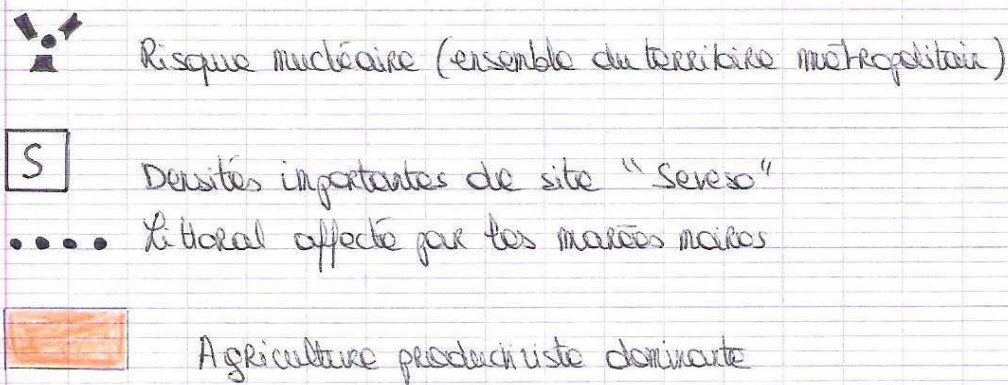 Risque nucléaire (ensemble du territoire métropolitain)
S
Densités importantes de site "Seveso"
Littoral affecté par les marées noires
Agriculture productiviste dominante